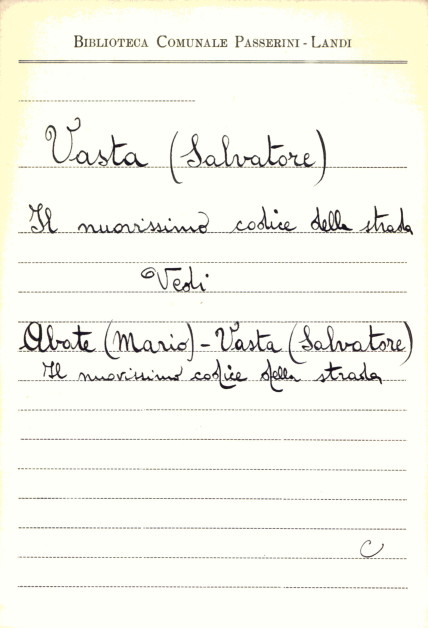 BIBLIOTECA COMUNALE PASSERINI - LANDI
Vasta (Salvatore)
Il nuovissimo codice della strada
Vedi
Abate (Mario) - Vasta (Salvatore)
Il nuovissimo codice della strada
C